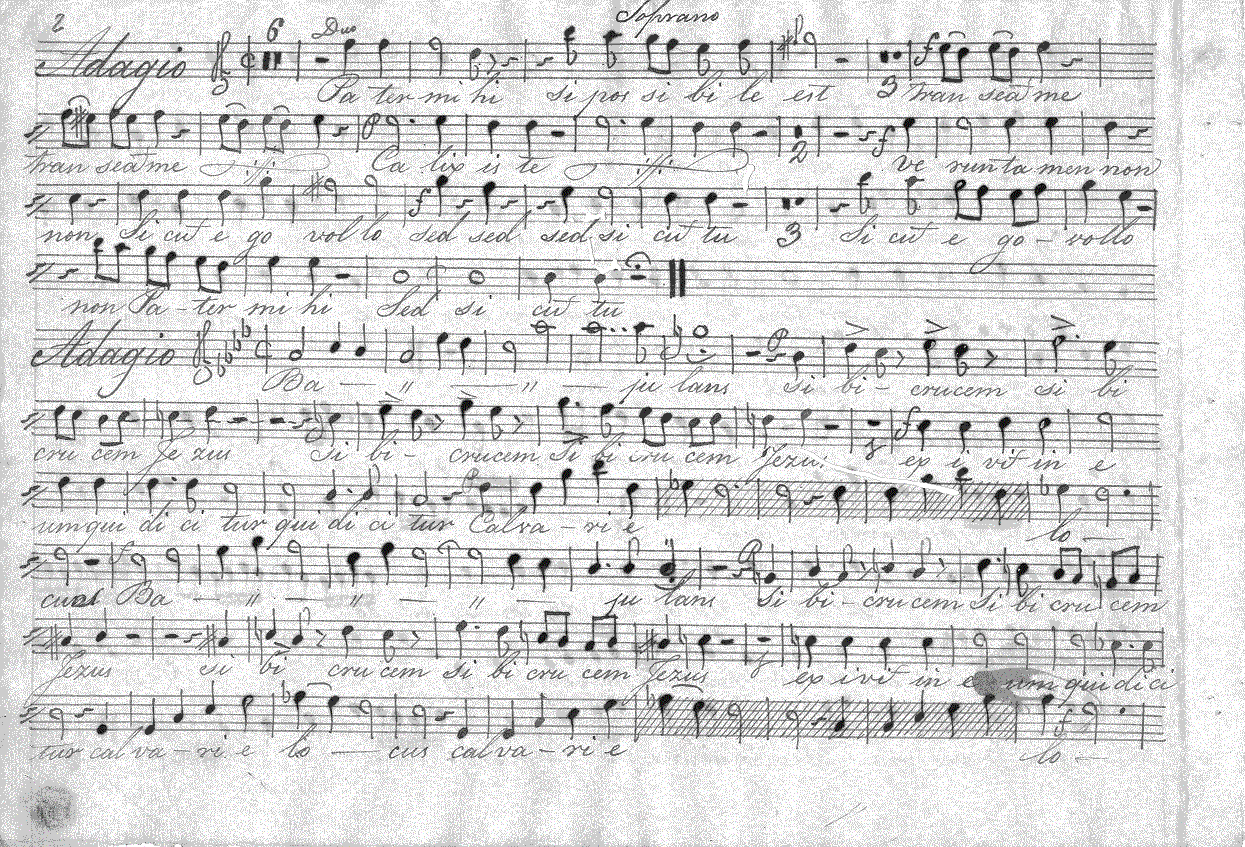 2 Soprano
Adagio 6 Duo 3
Pa ter mi hi si pos si bi le est Tran sea me
tran sea me Ca lix is te 2 ve run ta men non
non Si cut e go vol lo sed sed sed si cut tu 3 Si cut e go - vollo
non Pa - ter mi hi Sed si cut tu
Adagio
Ba — " — " — ju lans si bi - crucem si bi
cru cem Je zus Si bi - crucem Si bi cru cem Jezus ex i vit in e
um qui di ci tur qui di ci tur Calva - ri e lo —
cus Ba — " — " — " ju lans Si bi - cru cem Si bi cru cem
Jezus si bi cru cem si bi cru cem Jezus ex i vit in e um qui di ci
tur cal va - ri e lo — cus cal va - ri e lo -